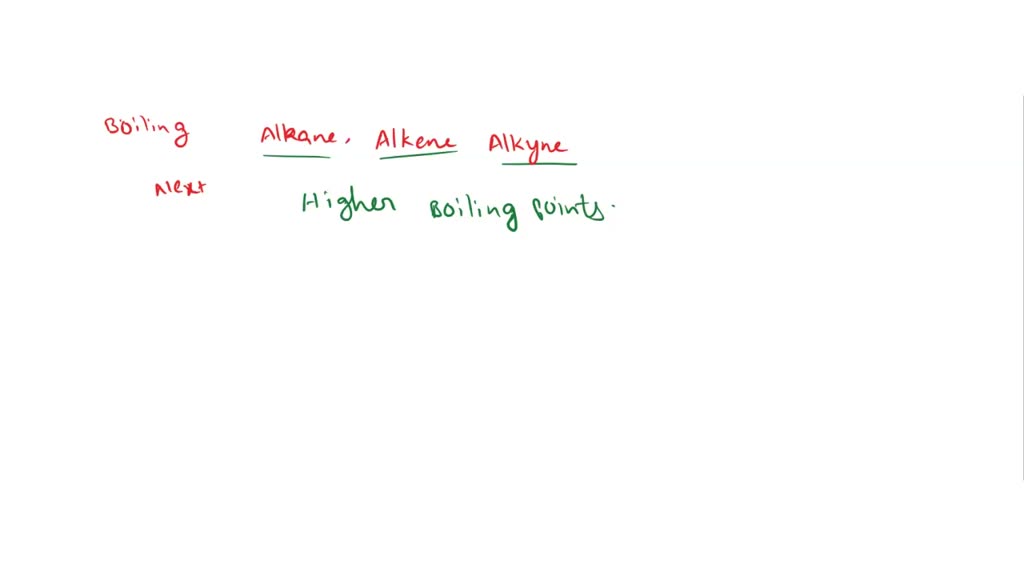 Boiling Alkane, Alkene Alkyne
Next
Higher Boiling points.